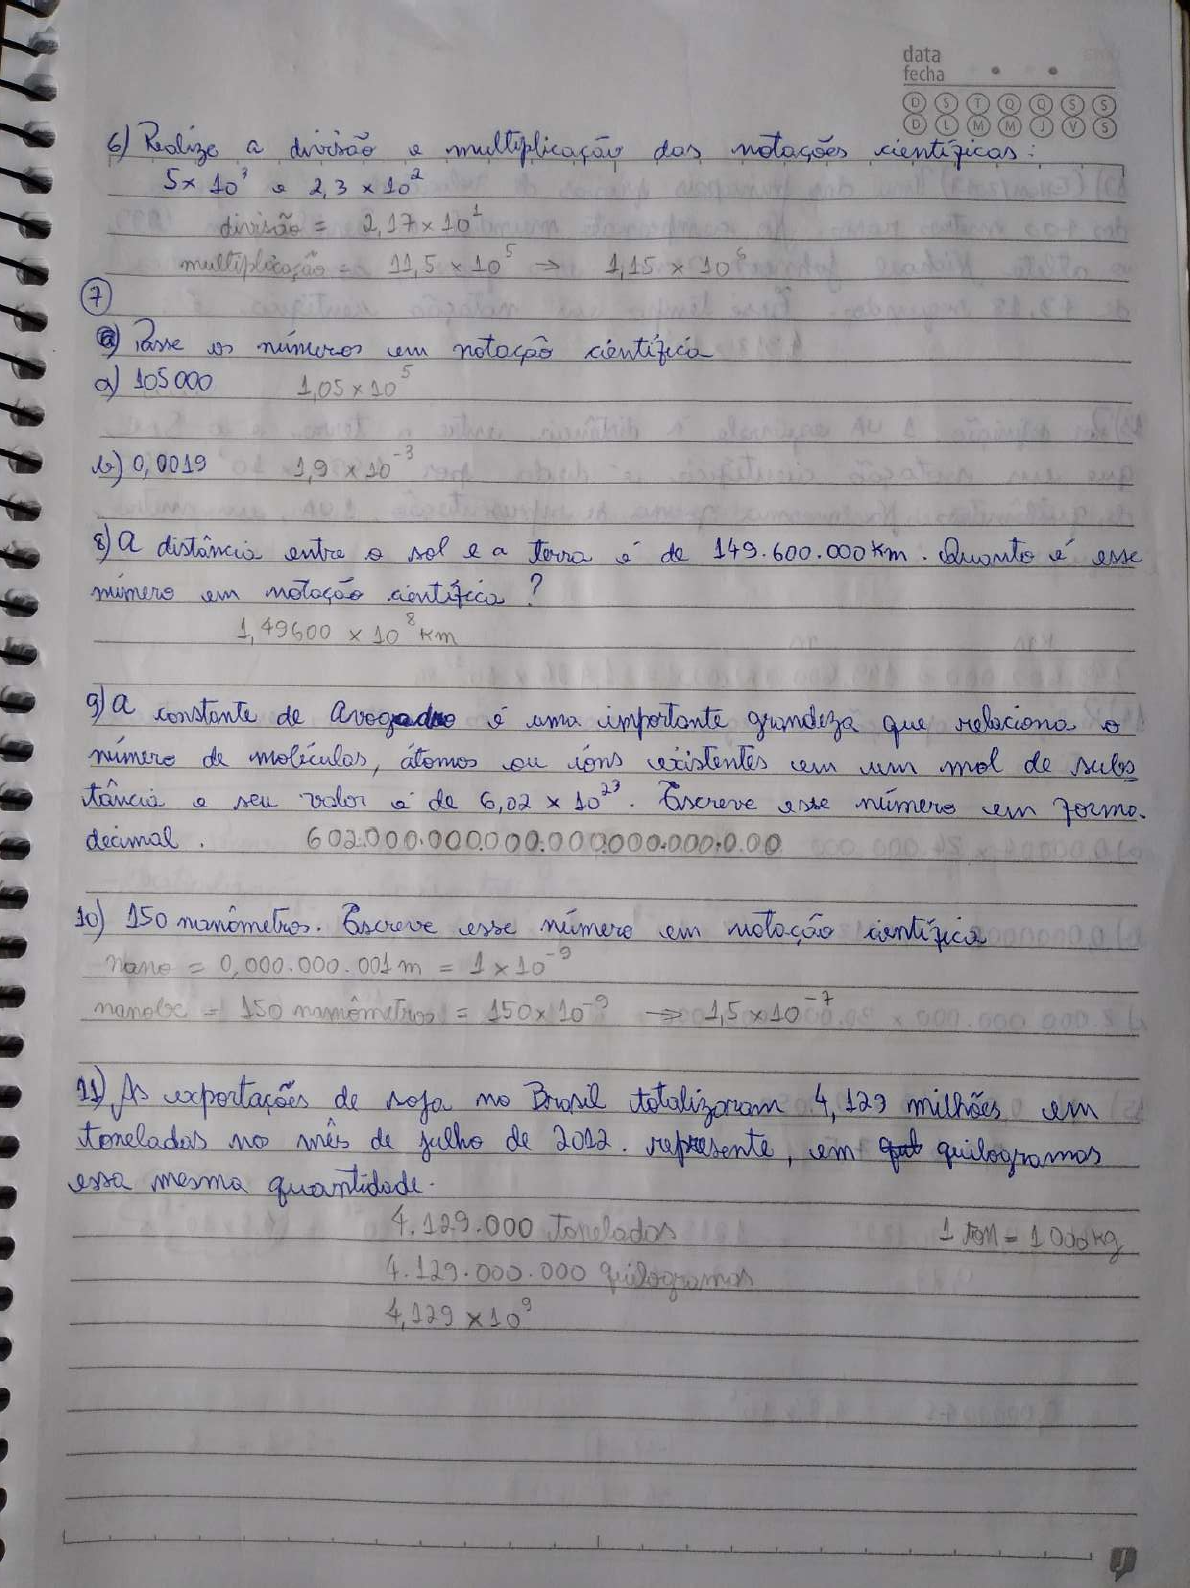 data
fecha
D S T Q Q S S
D L M M J V S
6) Realize a divisão e multiplicação das notações científicas:
5 x 10³ e 2,3 x 10²
divisão = 2,17 x 10¹
multiplicação = 11,5 x 10⁵ → 1,15 x 10⁶
7
a) Passe os números em notação científica
a) 105000 1,05 x 10⁵
b) 0,0019 1,9 x 10⁻³
8) A distância entre o sol e a terra é de 149.600.000 km. Quanto é esse
número em notação científica?
1,49600 x 10⁸ km
9) A constante de avogadro é uma importante grandeza que relaciona o
número de moléculas, átomos ou íons existentes em um mol de subs
tância e seu valor é de 6,02 x 10²³. Escreve esse número em forma
decimal. 602.000.000.000.000.000.000.0.00
10) 150 nanômetros. Escreve esse número em notação científica
nano = 0,000.000.001 m = 1 x 10⁻⁹
= 150 nanômetros = 150 x 10⁻⁹ → 1,5 x 10⁻⁷
11) As exportações de soja no Brasil totalizaram 4,129 milhões em
toneladas no mês de julho de 2012. represente, em quilogramas
essa mesma quantidade.
4.129.000 toneladas 1 ton = 1000 kg
4.129.000.000 quilogramas
4,129 x 10⁹